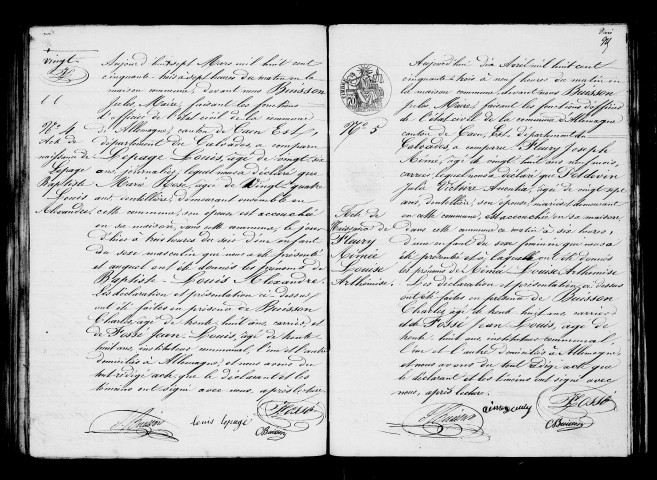 vingt
Nº 4
Acte de
naissance de
Lepage
Baptiste
Louis
Alexandre
Aujourd'hui sept Mars mil huit cent
cinquante-trois à sept heures du matin en la
maison commune, devant nous Buisson
Jules, Maire, faisant les fonctions
d'officier de l'état civil de la commune
d'Allemagne, canton de Caen Est,
département du Calvados a comparu
Lepage Louis, âgé de vingt six
ans, journalier, lequel nous a déclaré que
Marie Rose, âgée de vingt quatre
ans, dentellière, demeurant ensemble en
cette commune, son épouse est accouchée
en sa maison, dans cette commune, le jour
d'hier à trois heures du soir d'un enfant
du sexe masculin qui nous a été présenté
et auquel ont été donnés les prénoms de
Baptiste Louis Alexandre.
Les déclaration et présentation ci-dessus
ont été faites en présence de Buisson
Charles, âgé de trente huit ans, carrier, et
de Fosse Jean Louis, âgé de trente
huit ans, instituteur communal, l'un et l'autre
domiciliés à Allemagne, et nous avons du
tout rédigé acte que le déclarant et les
témoins ont signé avec nous, après lecture.
J Buisson
louis lepage
Fosse
C Buisson
Nº 5
Acte de
Naissance de
Fleury
Aimée
Louise
Arthémise
Aujourd'hui dix Avril mil huit cent
cinquante-trois à neuf heures du matin en
la maison commune, devant nous Buisson
Jules Maire, faisant les fonctions d'officier
de l'état civil de la commune d'Allemagne
canton de Caen, Est, département du
Calvados a comparu Fleury Joseph
Aimé, âgé de vingt huit ans neuf mois,
carrier, lequel nous a déclaré que
Julie Victoire, âgée de vingt sept
ans, dentellière, son épouse, mariés, demeurant
en cette commune, est accouchée en sa maison,
dans cette commune ce matin à six heures,
d'un enfant du sexe féminin qui nous a
été présenté et à laquelle ont été donnés
les prénoms de Aimée Louise Arthémise
Les déclaration et présentation ci-dessus
ont été faites en présence de Buisson
Charles, âgé de trente huit ans, carrier
et de Fosse Jean Louis, âgé de
trente huit ans, instituteur communal
l'un et l'autre domiciliés à Allemagne,
et nous avons du tout rédigé acte que
le déclarant et les témoins ont signé avec
nous, après lecture.
J Buisson
Fosse
C Buisson